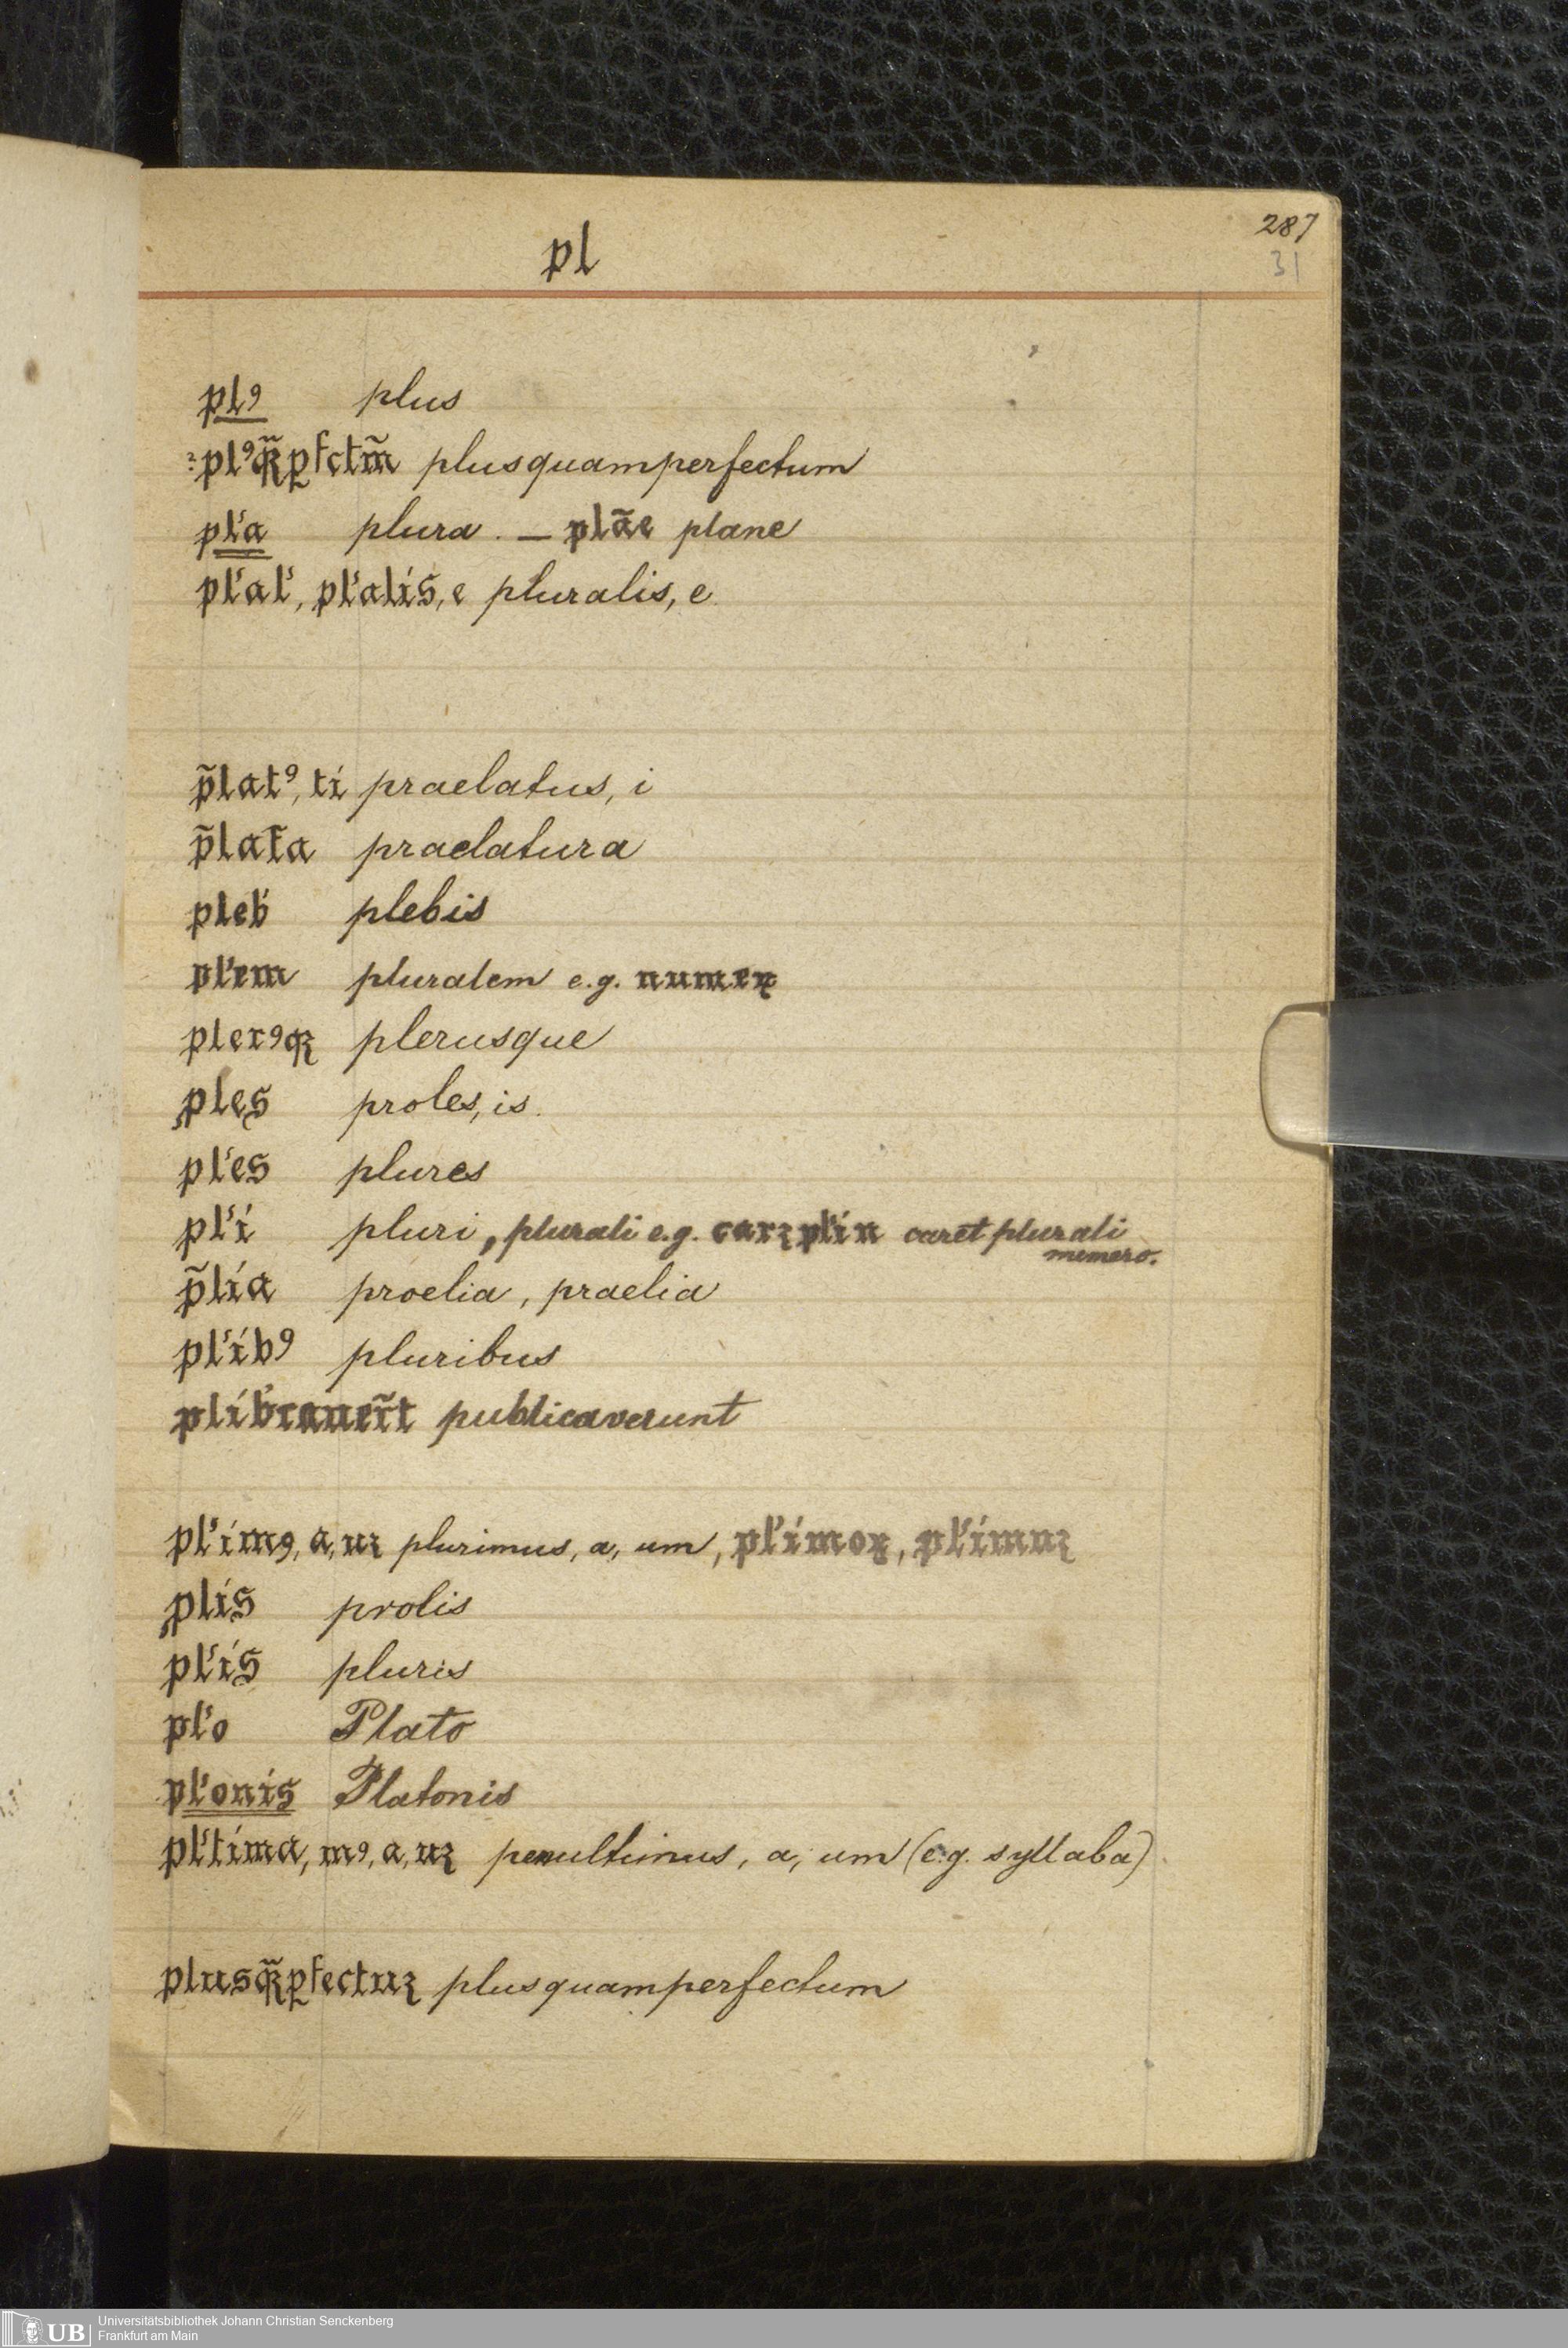 287
31
pl
plꝯ plus
plꝯqꝫ̃ꝑfctm̃ plusquamperfectum
pl'a plura. — plãe plane
pl'al', pl'alis, e pluralis, e
p̃latꝯ, ti praelatus, i
p̃lat̃a praelatura
pleb' plebis
pl'em pluralem e.g. numeꝝ
plerꝯqꝫ plerusque
ꝓles proles, is.
pl'es plures
pl'i pluri, plurali e.g. carꝫ pl'i n caret plurali
numero.
p̃lia proelia, praelia
pl'ibꝯ pluribus
plib'cauer̃t publicaverunt
pl'imꝯ, a, uꝫ plurimus, a, um, pl'imoꝝ, pl'imuꝫ
ꝓlis prolis
pl'is pluris
pl'o Plato
pl'onis Platonis
pl'tima, mꝯ, a, uꝫ penultimus, a, um (e.g. syllaba)
plusqꝫ̃ꝑfectuꝫ plusquamperfectum
UB Universitätsbibliothek Johann Christian Senckenberg
Frankfurt am Main